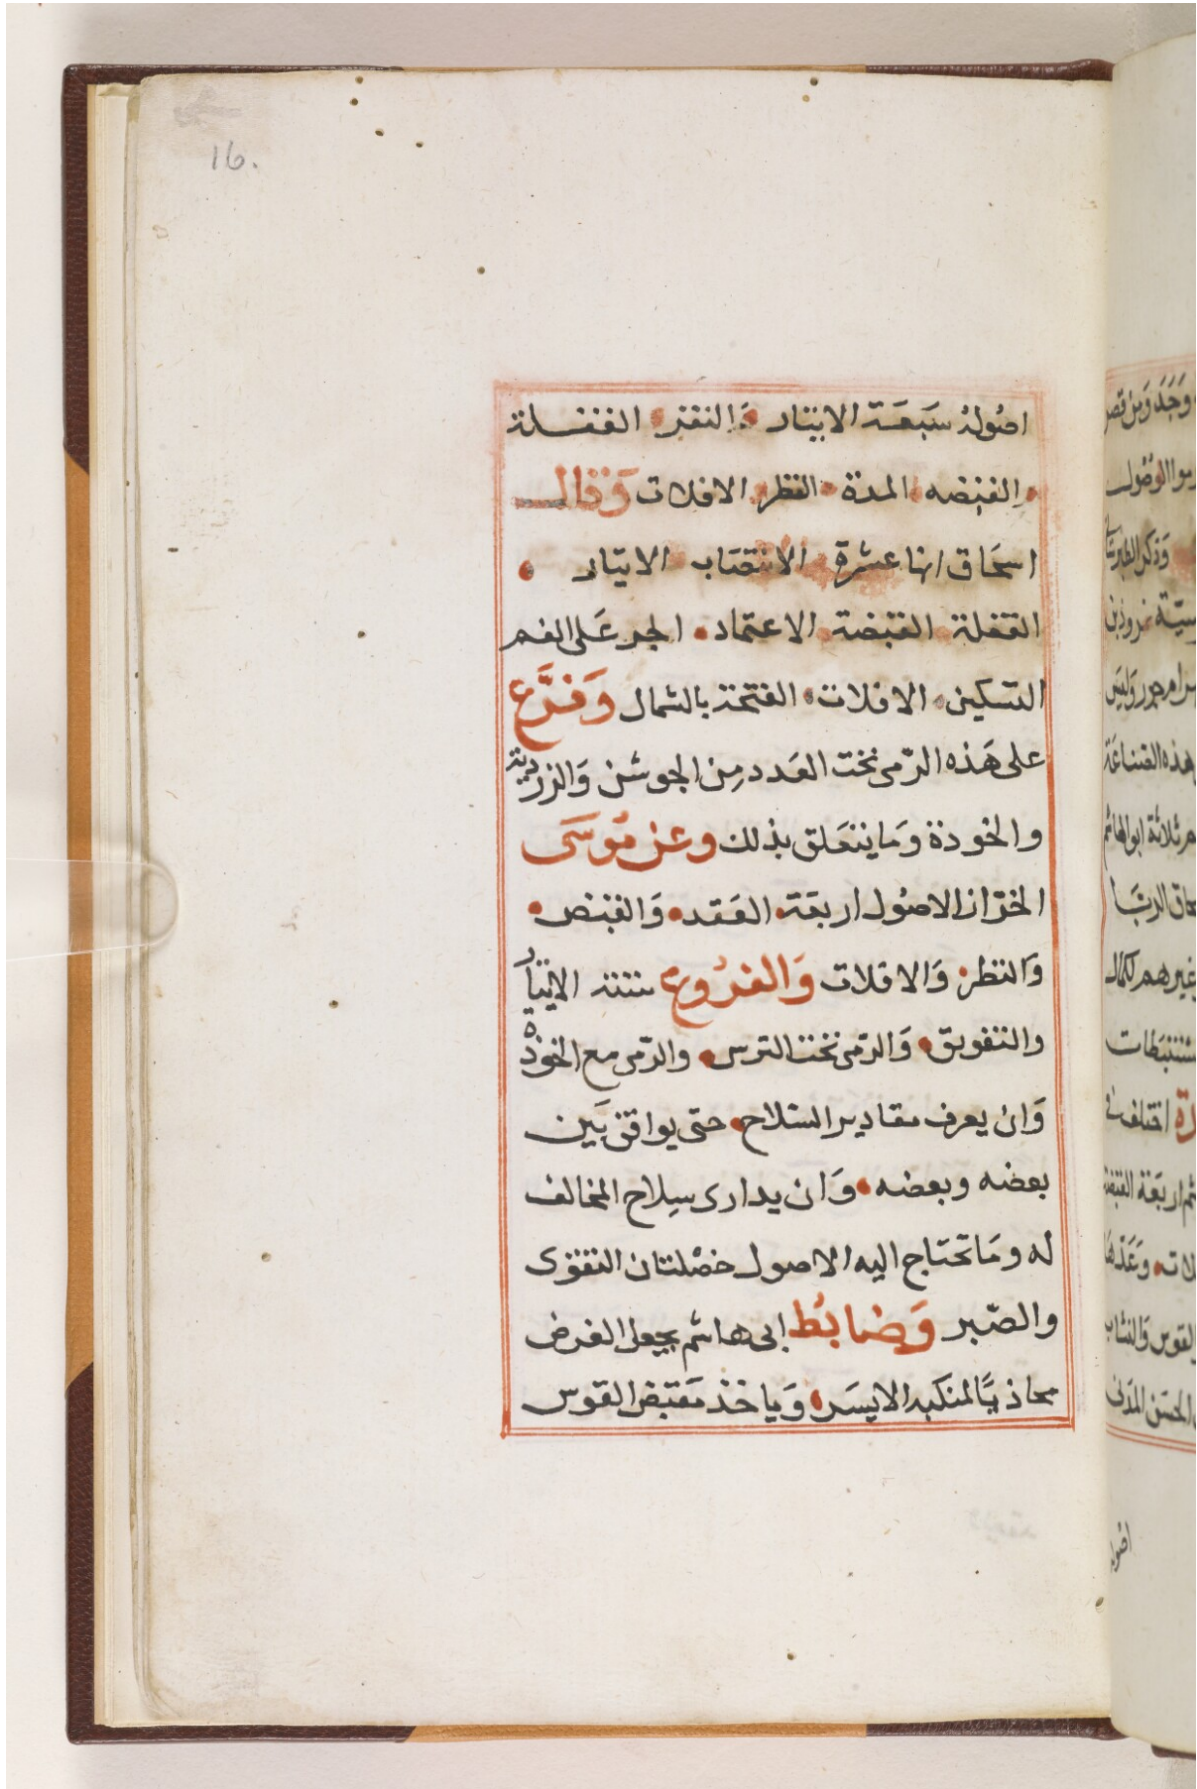 16.
اصُولهُ سَبعَة الايتار وَالنقز القفلة
القبضه المدة النظر الافلات وَقالـــ
اسحَاق انها عشرة الانتصَاب الايتار
القفلة القبضة الاعتماد الجر عَلى الفم
التسكين الافلات الفتحة بالشمال وَفرَّع
على هَذه الرّمى تحت العَدد مِن الجوشن وَالزردية
والخوذة وَما يتعَلق بذلك وعن مُوسَى
الخرّاز الاصُول اربعَة العَقد وَالقبض
وَالنظر وَالافلات وَالفرُوع ستة الايتار
والتفويق وَالرّمى تحت الترس والرّمى مع الخوذة
وَان يعرف مقادير السّلاح حتى يوافق بَين
بعضه وبعضه وَان يدارى سِلاح المخالف
له ومَا تحتاج اليه الاصول خصْلتان التقوى
والصّبر وَضابُط ابى هاشم يجعل الغرض
محاذيًا لمنكبه الايسَر وَياخذ مَقبض القوس